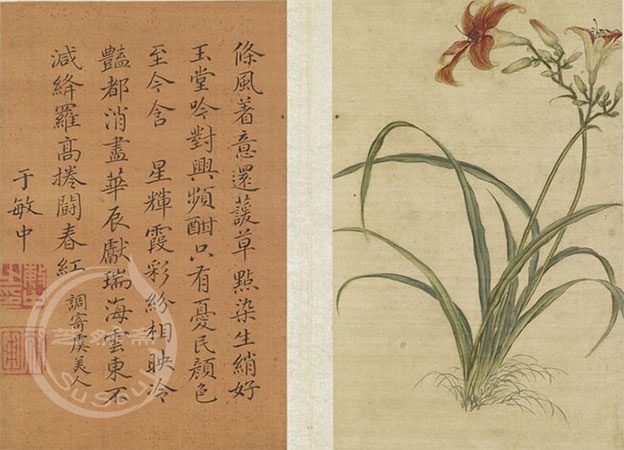 條風着意還蘐草點染生綃好
玉堂吟對興頻酣只有憂民顏色
至今含 星輝霞彩紛相映冷
豔都消盡華辰獻瑞海雲東不
減絳羅高捲闘春紅 調寄虞美人
于敏中